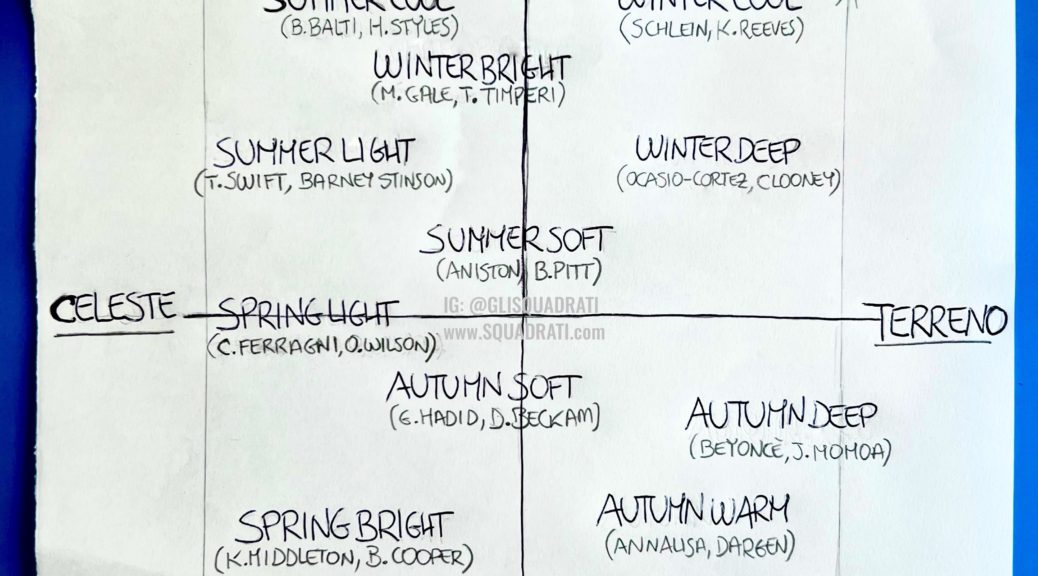 SUMMER COOL
WINTER COOL
(B.BALTI, H.STYLES)
(SCHLEIN, K.REEVES)
WINTER BRIGHT
(M.GALE, T.TIMPERI)
SUMMER LIGHT
(T.SWIFT, BARNEY STINSON)
WINTER DEEP
(OCASIO-CORTEZ, CLOONEY)
SUMMER SOFT
(ANISTON, B.PITT)
CELESTE
SPRING LIGHT
(C.FERRAGNI, O.WILSON)
IG: @GLISQUADRATI
www.SQUADRATI.com
TERRENO
AUTUMN SOFT
(G.HADID, D.BECKAM)
AUTUMN DEEP
(BEYONCÈ, J.MOMOA)
SPRING BRIGHT
(K.MIDDLETON, B.COOPER)
AUTUMN WARM
(ANNALISA, DARGEN)